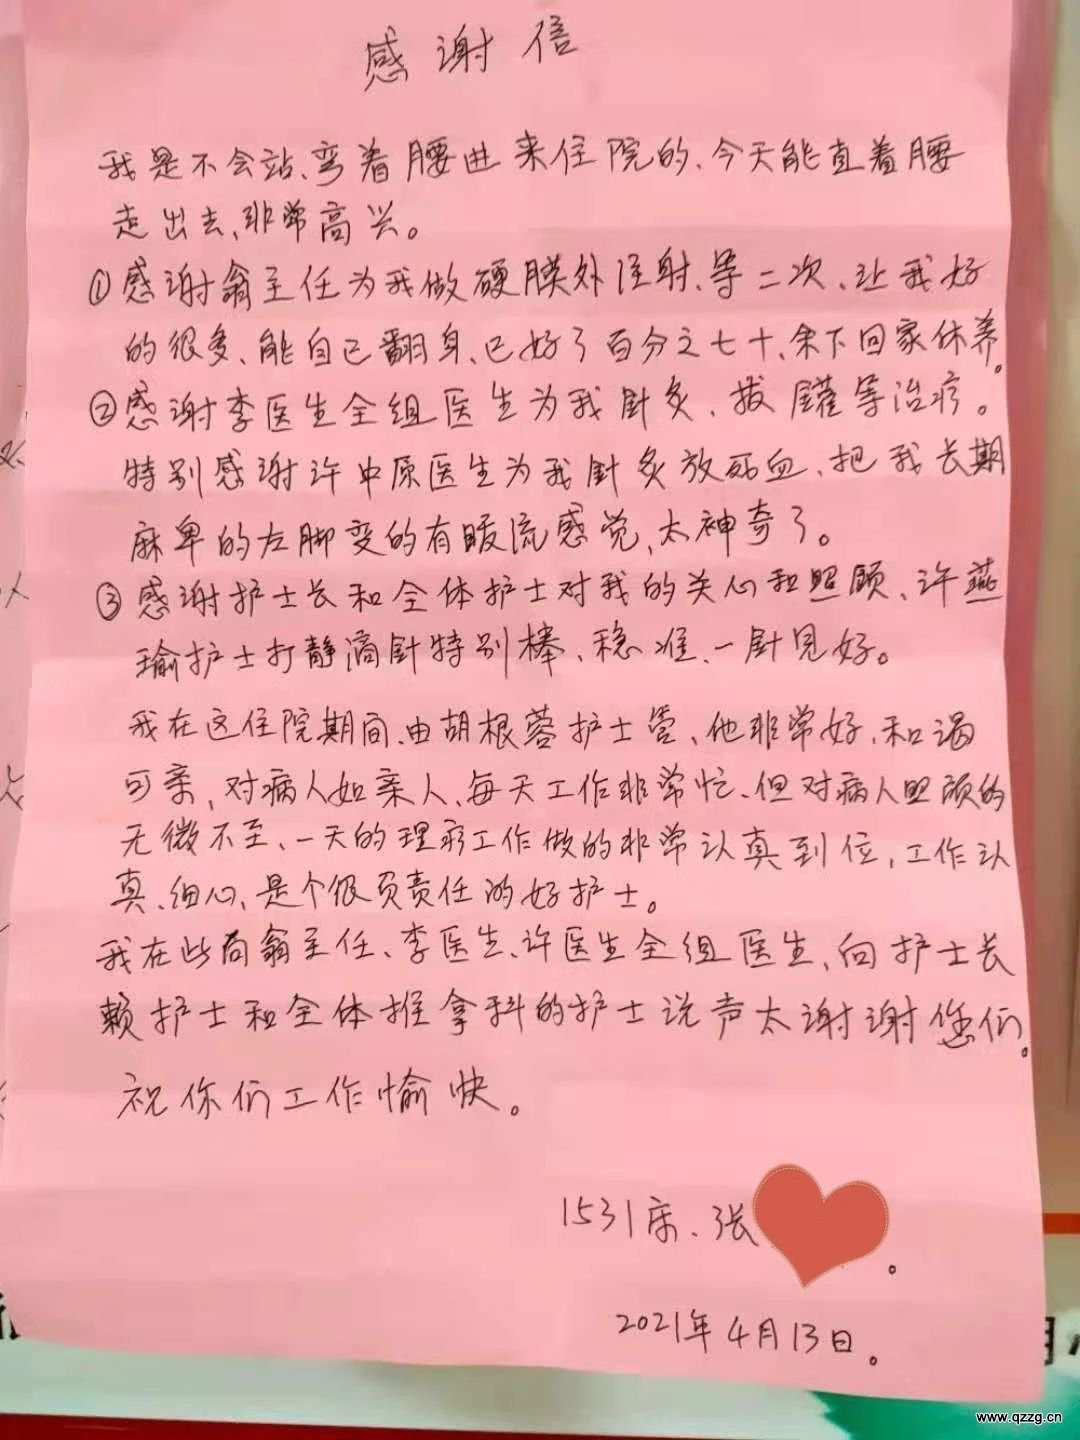 感谢信
我是不会站、弯着腰进来住院的、今天能直着腰
走出去、非常高兴。
①感谢翁主任为我做硬膜外注射、等二次、让我好
的很多、能自已翻身、已好了百分之七十、余下回家休养。
②感谢李医生全组医生为我针灸、拔罐等治疗。
特别感谢许中原医生为我针灸放死血、把我长期
麻卑的左脚变的有暖流感觉、太神奇了。
③感谢护士长和全体护士对我的关心和照顾、许燕
瑜护士打静滴针特别棒、稳、准、一针见好。
我在这住院期间、由胡根蓉护士管、他非常好、和谒
可亲，对病人如亲人、每天工作非常忙、但对病人照顾的
无微不至、一天的理疗工作做的非常认真到位，工作认
真、细心、是个很负责任的好护士。
我在此向翁主任、李医生、许医生全组医生、向护士长
赖护士和全体推拿科的护士说声太谢谢您们。
祝你们工作愉快。
1531床、张
。
2021年4月13日。
www.qzzg.cn